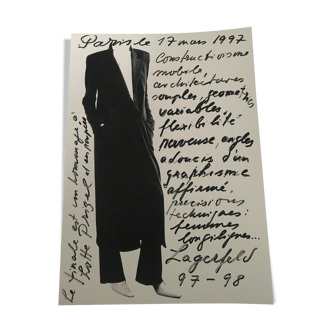 Paris le 17 mars 1997
Constructivisme
mobile,
architectures
souples, géométries
variables
flexibilité
nerveuse, angles
adoucis d'un
graphisme
affirmé,
précisions
techniques:
femmes
longilignes...
Lagerfeld
97-98
Le finale est un hommage à
Lotte Pritzel et ses poupées